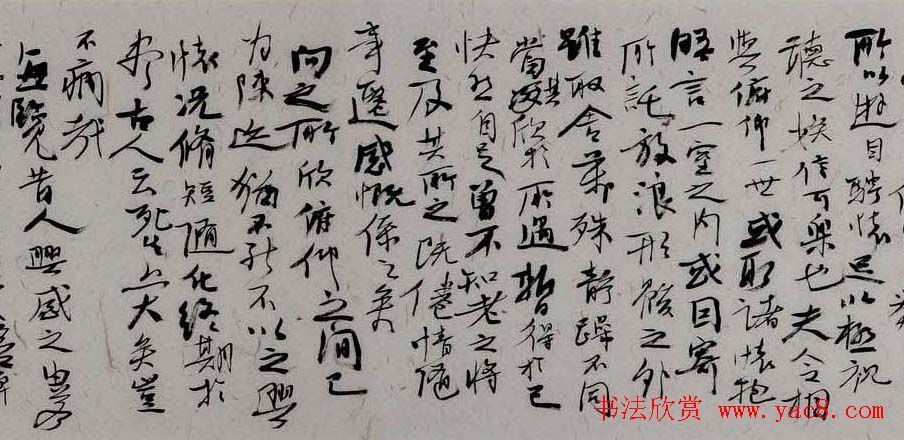 所以遊目騁懷足以極視
聽之娛信可樂也夫人之相
與俯仰一世或取諸懷抱
晤言一室之內或因寄
所託放浪形骸之外
雖取舍萬殊靜躁不同
當其欣於所遇暫得於己
快然自足曾不知老之將
至及其所之既倦情隨
事遷感慨係之矣
向之所欣俯仰之間已
為陳迹猶不能不以之興
懷況脩短隨化終期於
盡古人云死生亦大矣豈
不痛哉
每覽昔人興感之由若
书法欣赏 www.yac8.com